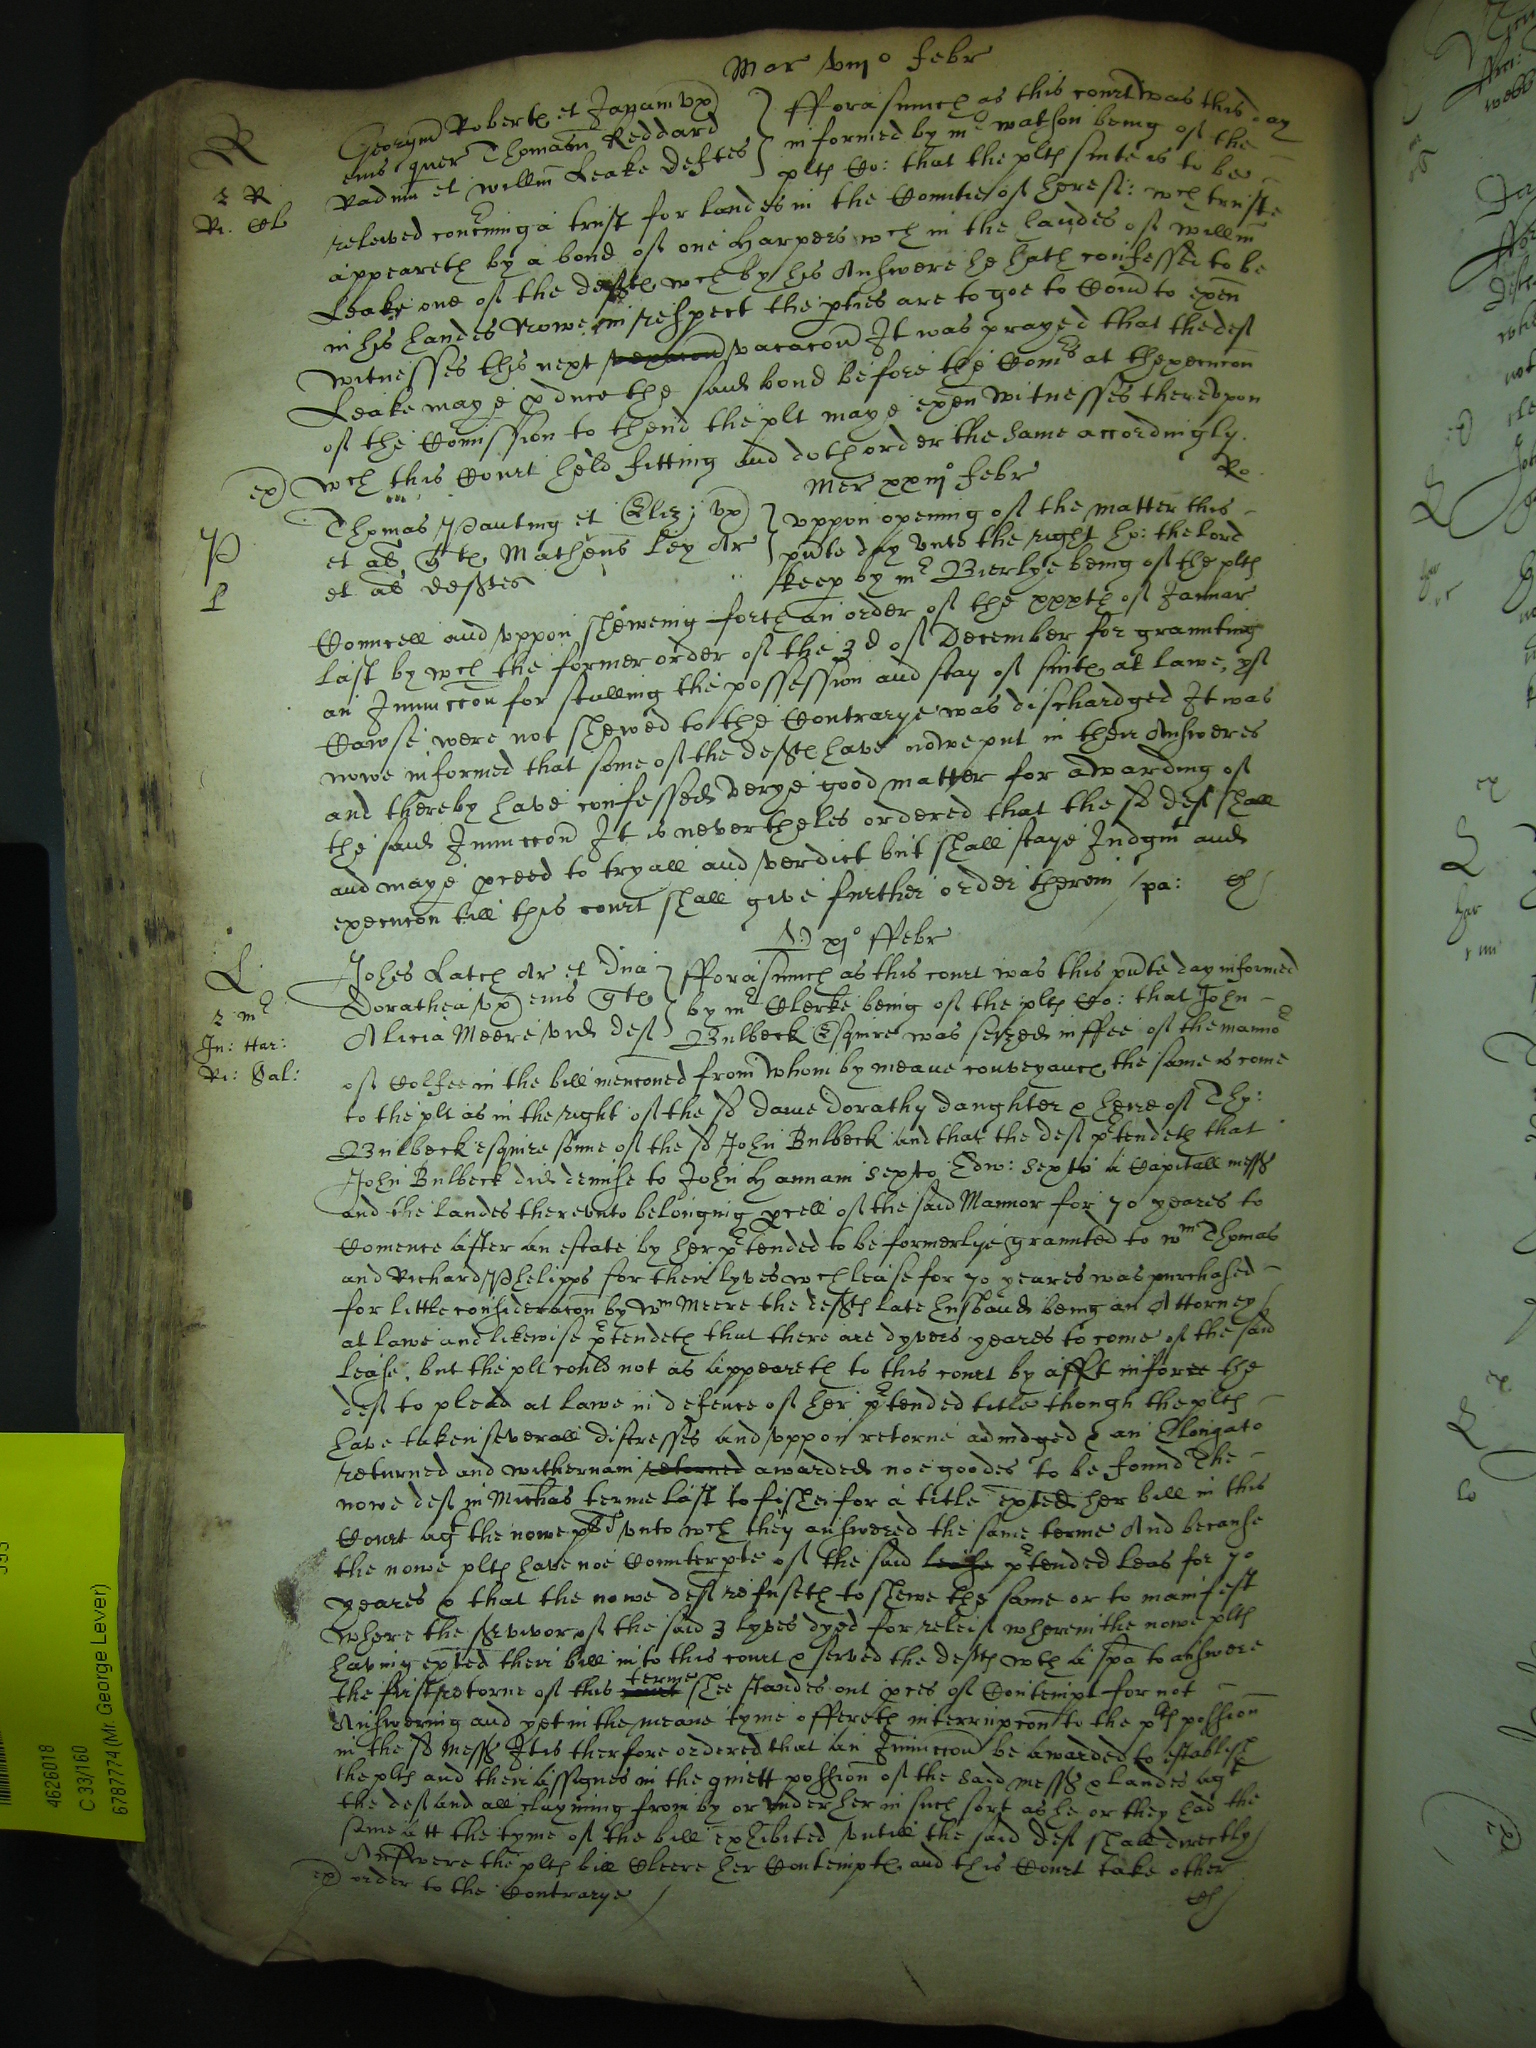 Mar viijo Febr
R
2 R
Ri. Eb
Georgium Robertes et Janam ux
eius quer Thomasin Reddard
vid et Willm Leake Deftes
fforasmuch as this court was this day
informed by mr Watson being of the
plts Co: that the plts suite is to bee
releived concning a trust for landes in the Countie of : wch truste
appeareth by a bond of one Harpers wch in the handes of Willm
Leake one of the defts wch by his Answere he hath confessed to be
in his handes Nowe in respect the pties are to goe to Comon to exen
witnesses this next vacacon It was prayed that the def
Leake maye pduce the said bond before the Comrs at thexecucon
of the Comission to thend the plt maye exen witnesses thereupon
wch this Court held fitting and doth order the same accordingly.
ex
Ro
Mer xxiijo Febr
P
L
Thomas Pauting et Eliz: ux
et als qtes Matheus Ley Ar
et als deftes
uppon opening of the matter this
pnte day unto the right ho: the Lord
keep by mr Bierlye being of the plts
Councell and uppon shewing forth an order of the xxxth of Januar
last by wch the former order of the 3d of December for graunting
an Iniunccon for stalling the possession and stay of suites at lawe, yf
Cawse were not shewed to the Contrarye was dischardged It was
nowe informed that some of the defts have nowe put in their Answeres
and thereby have confessed verye good matter for awarding of
the said Iniunccon It is nevertheles ordered that the sd def shall
and maye pceed to tryall and verdict but shall staye Judgmt and
execucon till this court shall give further order therein / pa:
xjo ffebr
L
2 mr
Jn: Har:
Ri: Sal:
Johes Latch Ar et Dna
Dorathea ux eius qtes
Alicia Meere vid def
fforasmuch as this court was this pnte day informed
by mr Clerke being of the plts Co: that John
Bulbeck Esquire was seized in ffee of the mannor
of in the bill mencioned from whom by meane conveyances the same is come
to the plt as in the right of the sd dame Dorathy daughter & heire of Tho:
Bulbeck esquire sonne of the sd John Bulbeck and that the def ptendeth that
John Bulbeck did demise to John Hannam sexto Edw: sexti a Capitall mess
and the landes thereunto belonging pcell of the said Mannor for 70 yeares to
Comence after an estate by her ptended to be formerlye graunted to Wm Thomas
and Richard Phelipps for their lyves wch lease for 70 yeares was purchased
for little consideracon by Wm Meere the defts late husband being an Attorney
at lawe and likewise ptendeth that there are dyvers yeares to come of the said
lease, but the plt could not as appeareth to this court by afft inforce the
def to plead at lawe in defence of her ptended title though the plts
have taken severall distresses and uppon retorne adiudged & an Elongato
returned and withernam retorned awarded noe goodes to be found The
nowe def in Michas terme last to fishe for a title exted her bill in this
Court agt the nowe plts unto wch they answered the same terme And because
the nowe plts have noe Counterpte of the said lease ptended leas for 70
yeares & that the nowe def refuseth to shewe the same or to manifest
where the survivor of the said 3 lyves dyed for releif wherein the nowe plts
having exted their bill into this court & served the defts wth a spa to answere
the first retorne of this court terme shee standes out pces of Contempt for not
Answering and yet in the meane tyme offereth interrupcon to the plts possion
in the sd Mess It is therfore ordered that an Iniunccon be awarded to establish
the plts and their Assignes in the quiett possion of the said mess & landes agt
the def and all clayming from by or under her in such sort as he or they had the
same att the tyme of the bill exhibited untill the said def shall directly
Answere the plts bill Cleere her Contempts and this Court take other
ex order to the Contrarye
4626018
C 33/160
6787774 (Mr. George Lever)